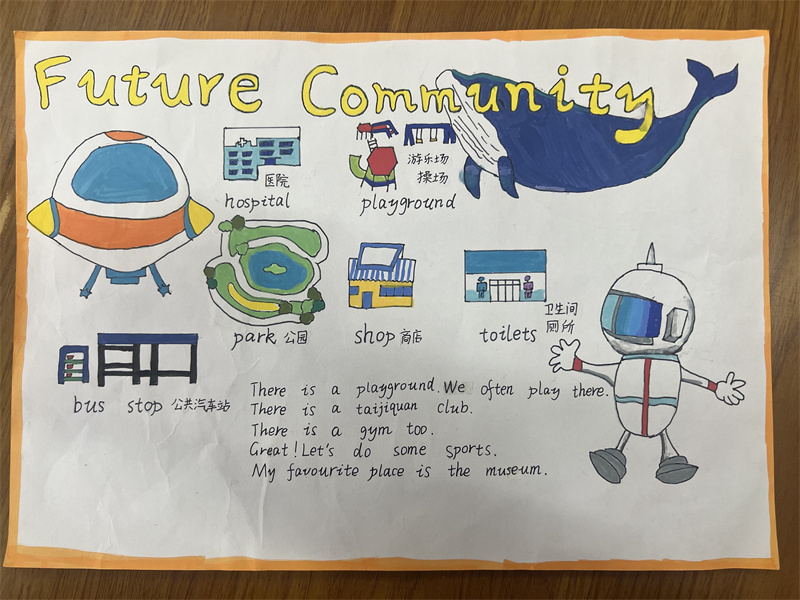 Future Community
医院
hospital
游乐场
操场
playground
park 公园
shop 商店
卫生间
toilets 厕所
bus stop 公共汽车站
There is a playground. We often play there.
There is a taijiquan club.
There is a gym too.
Great! Let's do some sports.
My favourite place is the museum.